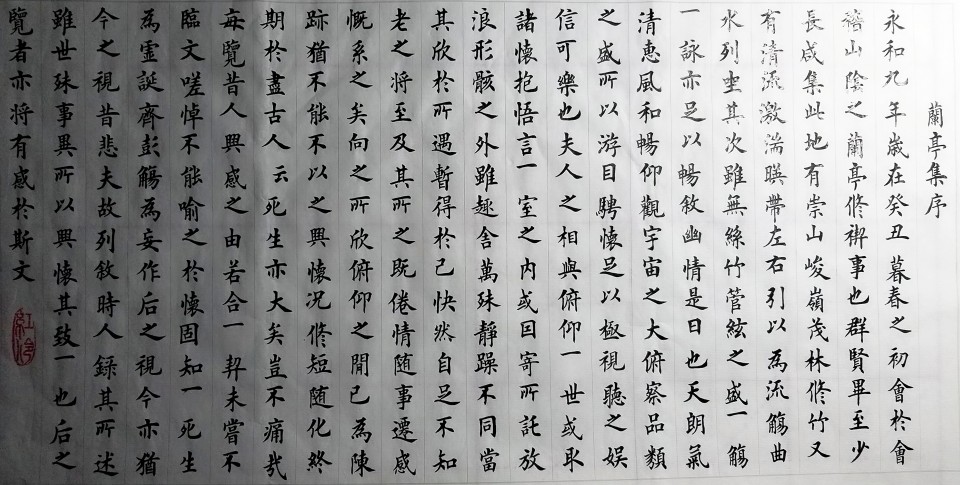 蘭亭集序
永和九年歲在癸丑暮春之初會於會
稽山陰之蘭亭修禊事也群賢畢至少
長咸集此地有崇山峻嶺茂林修竹又
有清流激湍暎帶左右引以為流觴曲
水列坐其次雖無絲竹管絃之盛一觴
一詠亦足以暢敘幽情是日也天朗氣
清惠風和暢仰觀宇宙之大俯察品類
之盛所以游目騁懷足以極視聽之娛
信可樂也夫人之相與俯仰一世或取
諸懷抱悟言一室之內或因寄所託放
浪形骸之外雖趣舍萬殊靜躁不同當
其欣於所遇暫得於己快然自足不知
老之將至及其所之既倦情随事遷感
慨系之矣向之所欣俯仰之間已為陳
跡猶不能不以之興懷況修短随化終
期於盡古人云死生亦大矣豈不痛哉
每覽昔人興感之由若合一契未嘗不
臨文嗟悼不能喻之於懷固知一死生
為虛誕齊彭觴為妄作后之視今亦猶
今之視昔悲夫故列敘時人錄其所述
雖世殊事異所以興懷其致一也后之
覽者亦將有感於斯文